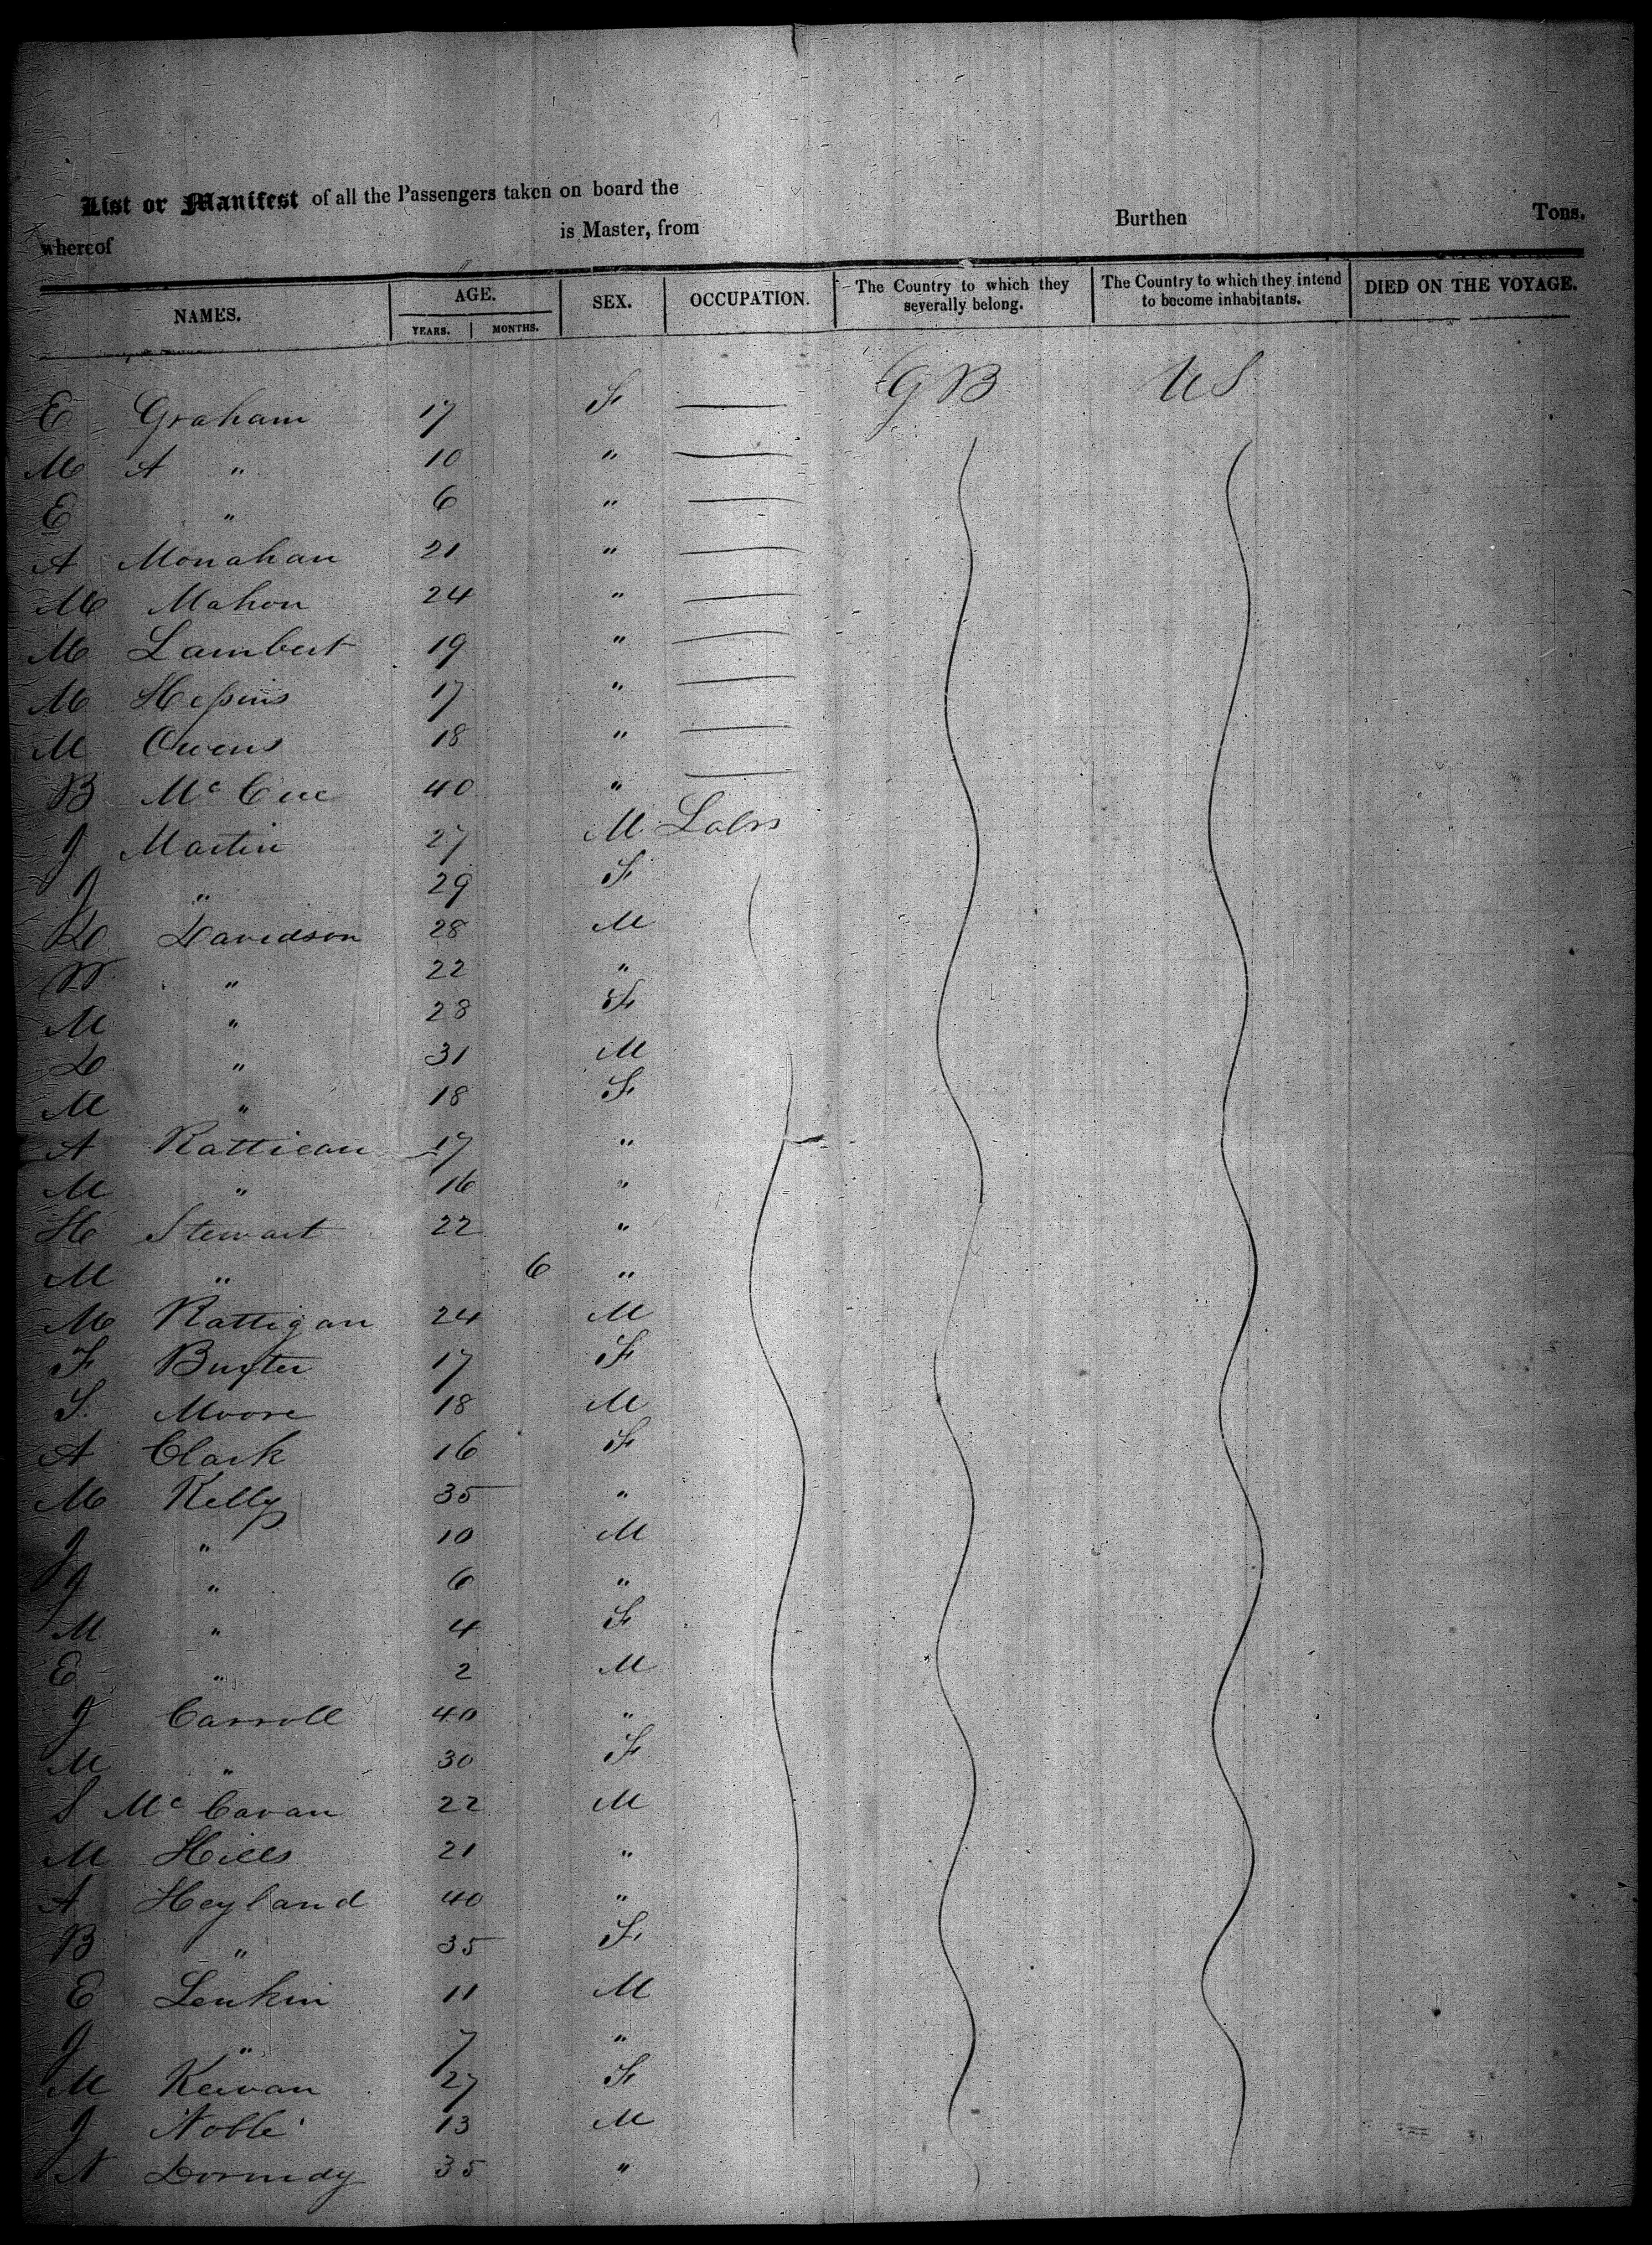 List or Manifest of all the Passengers taken on board the Burthen Tons.
whereof is Master, from
NAMES. AGE. YEARS. MONTHS. SEX. OCCUPATION. The Country to which they severally belong. The Country to which they intend to become inhabitants. DIED ON THE VOYAGE.
E Graham 17 F — GB US
M A " 10 " —
E " 6 " —
A Monahan 21 " —
M Mahon 24 " —
M Lambert 19 " —
M 17 " —
M Owens 18 " —
B Mc Cue 40 " —
J Martin 27 M Labrs
J " 29 F
D Davidson 28 M
W " 22 "
M " 28 F
D " 31 M
M " 18 F
A Rattican 17 "
M " 16 "
H Stewart 22 "
M " 6 "
M Rattigan 24 M
F Buxter 17 F
S Moore 18 M
A Clark 16 F
M Kelly 35 "
J " 10 M
J " 6 "
M " 4 F
E " 2 M
J Carroll 40 "
M " 30 F
S Mc Cavan 22 M
M Hills 21 "
A Heyland 40 "
B " 35 F
E Lenkin 11 M
J " 7 "
M Kewan 27 F
J Noble 13 M
N Dormdy 35 "